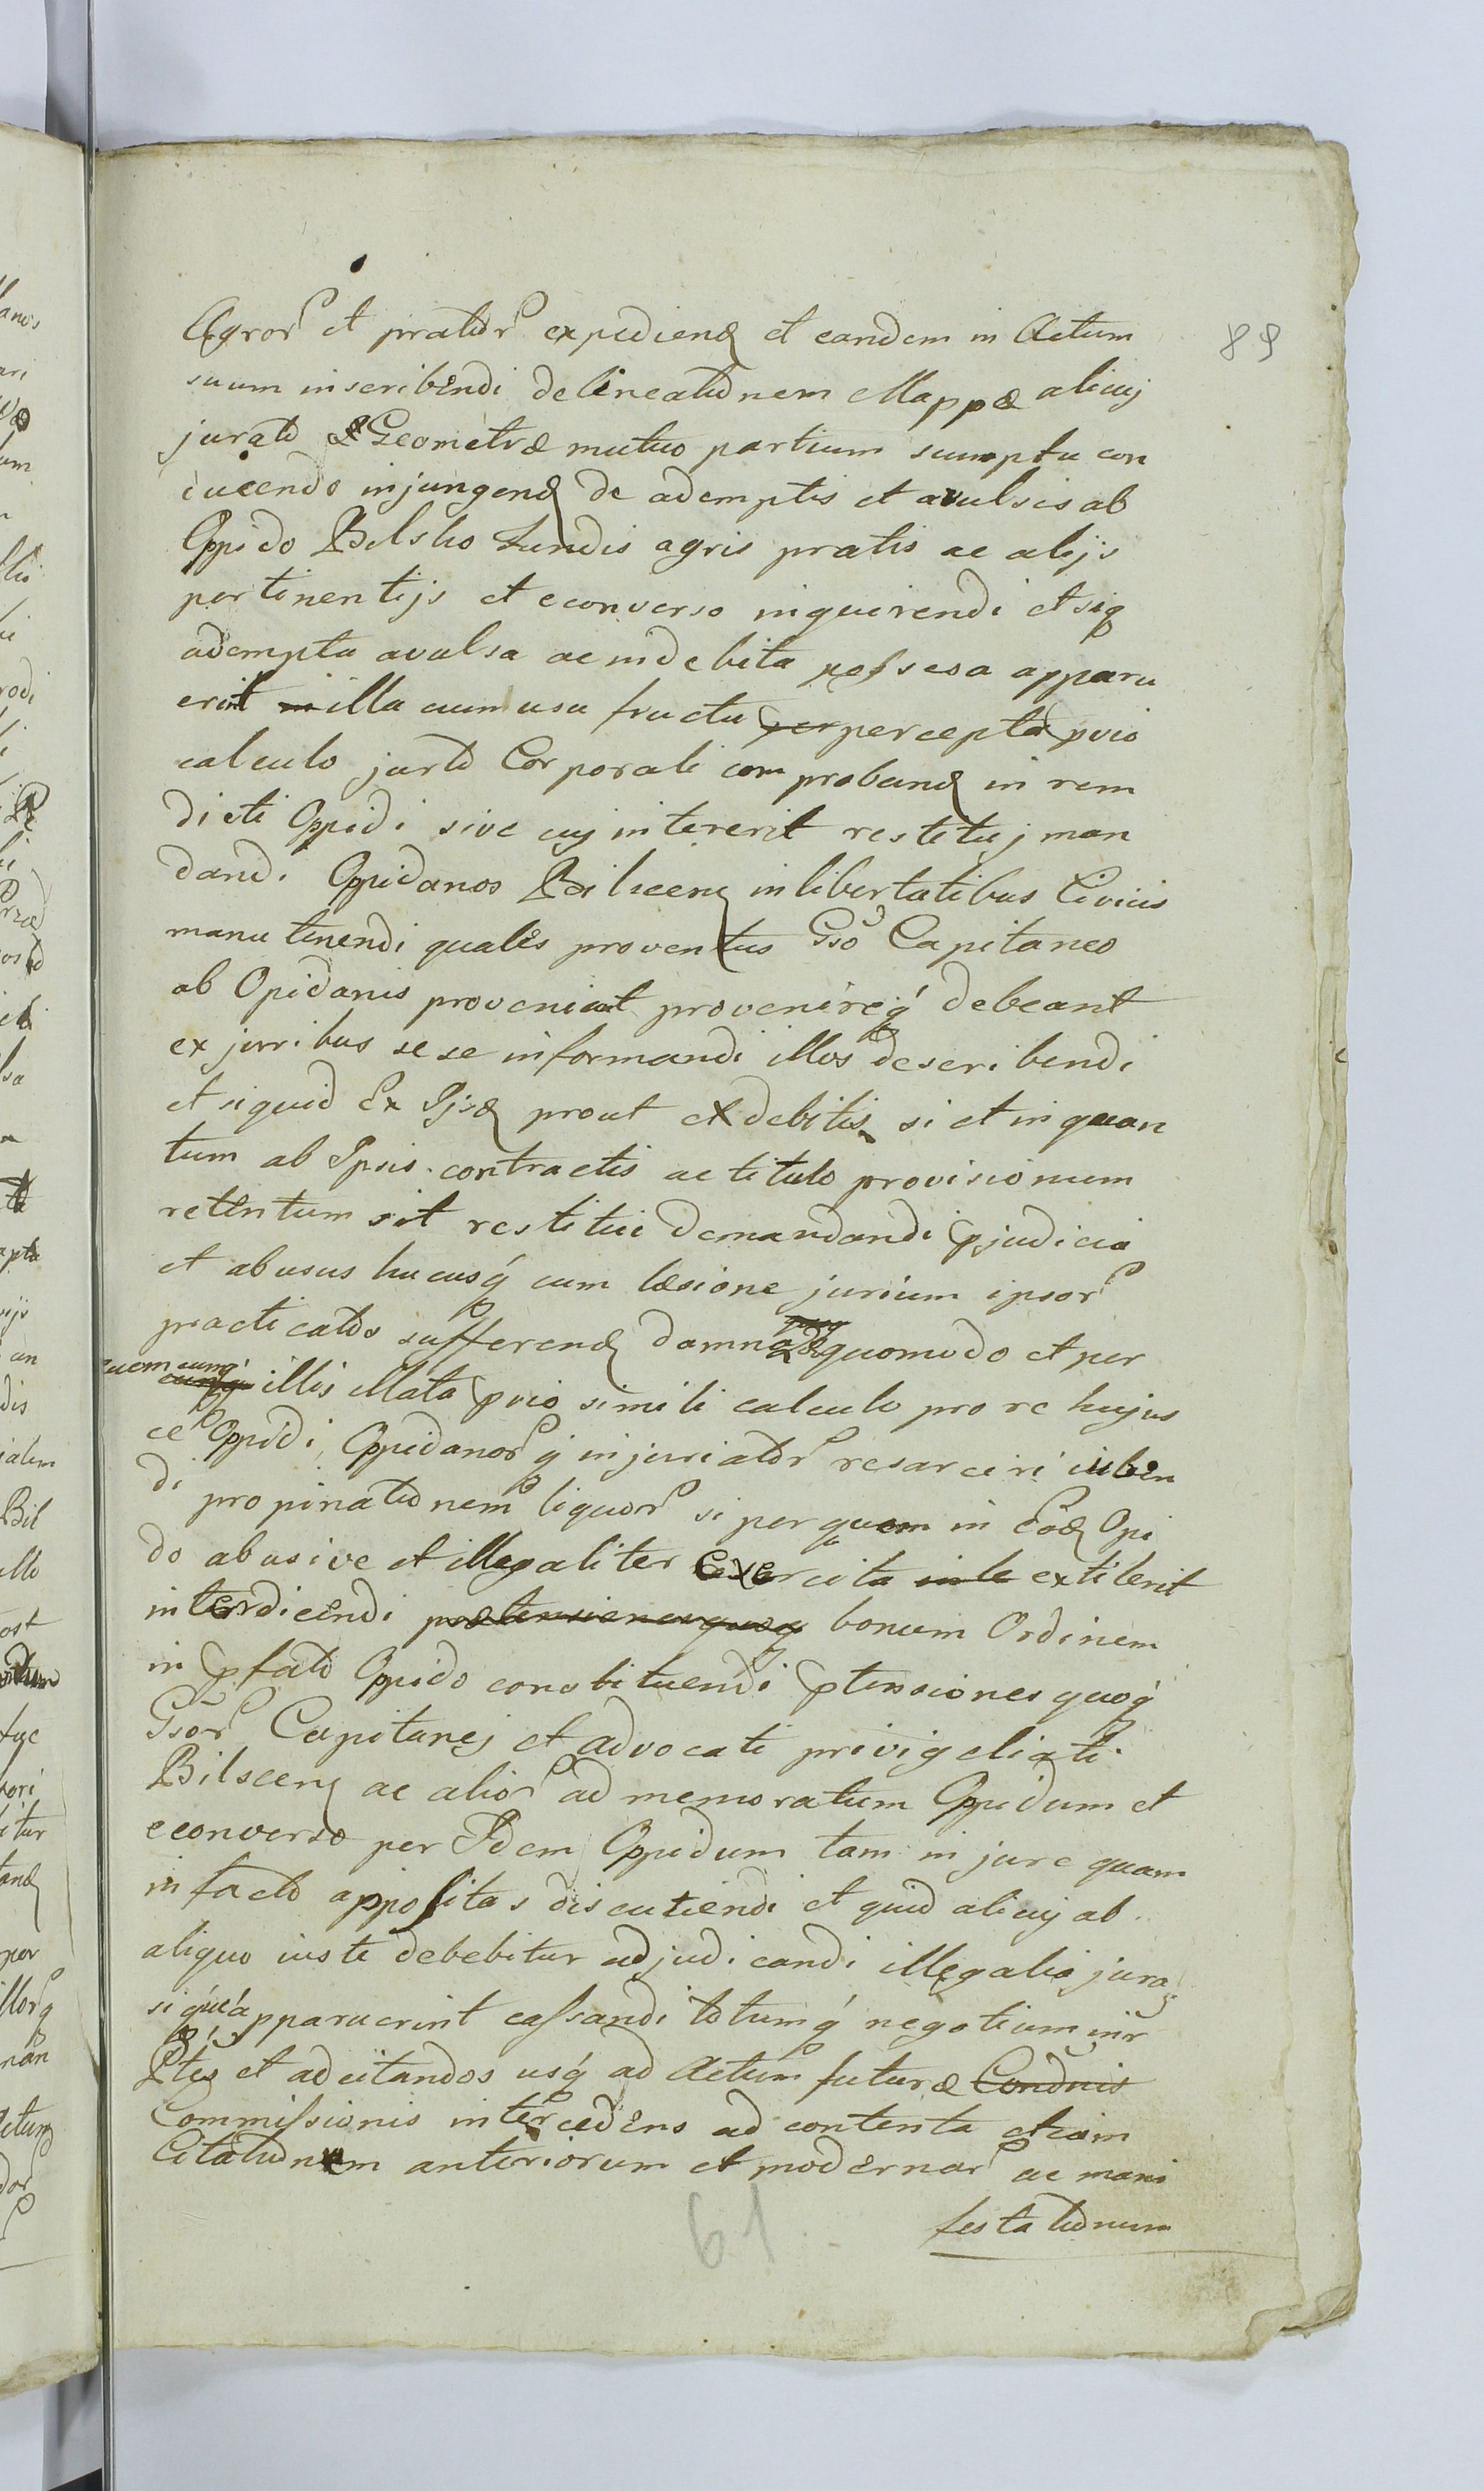 Agror et prator expediend et eandem in Actum
89
suum inscribendi delineationem Mappæ alicuj
jurato Geometræ mutuo partium sumptu con
ducendo injungend de ademptis et avulsis ab
Oppido Bilsko fundis agris pratis ac alijs
pertinentijs et econverso inquirendi et siq
adempta avulsa ac indebita possessa apparu
erint in illa cum usu fructu per percepta pvio
calculo jurto Corporali comproband in rem
dicti Oppidi sive cuj intererit restituj man
dandi Oppidanos Bilscen in libertatibus Civicis
manutenendi quales proventus Gso Capitaneo
ab Opidanis proveniat provenireq debeant
ex juribus sese informandi illos describendi
et siquid Ex Ijsd prout et debitis si et in quan
tum ab Ipsis contractis ac titulo provisionum
retentum sit restitui demandandi pjudicia
et abusus hucusq cum læsione jurium ipsor
practicatos sufferend damna quomodo et per
quem cunq illis illata pvio simili calculo pro re hujus
ce Oppidi Oppidanor q injuriator resarciri iuben
di propinationem liquor si per quem in Eod Opi
do abusive et illegaliter exercita inle extiterit
interdicendi prætensionesquoq bonum Ordinem
in pfato Oppido constituendi ptensiones quoq
Gsor Capitanej et advocati privigeliati
Bilscen ac alior ad memoratum Oppidum et
econverso per Idem Oppidum tam in jure quam
in facto appositas discutiendi et quid alicuj ab
aliquo iuste debebitur adjudicandi illegalia jura
si que apparuerint cassandi totumq negotium intr
Ptes et adcitandos usq ad Actum futuræ Condnis
Commissionis intercedens ad contenta etiam
Citationem anteriorum et modernar ac mani
festationum
61